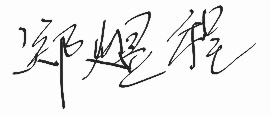 郑煜程